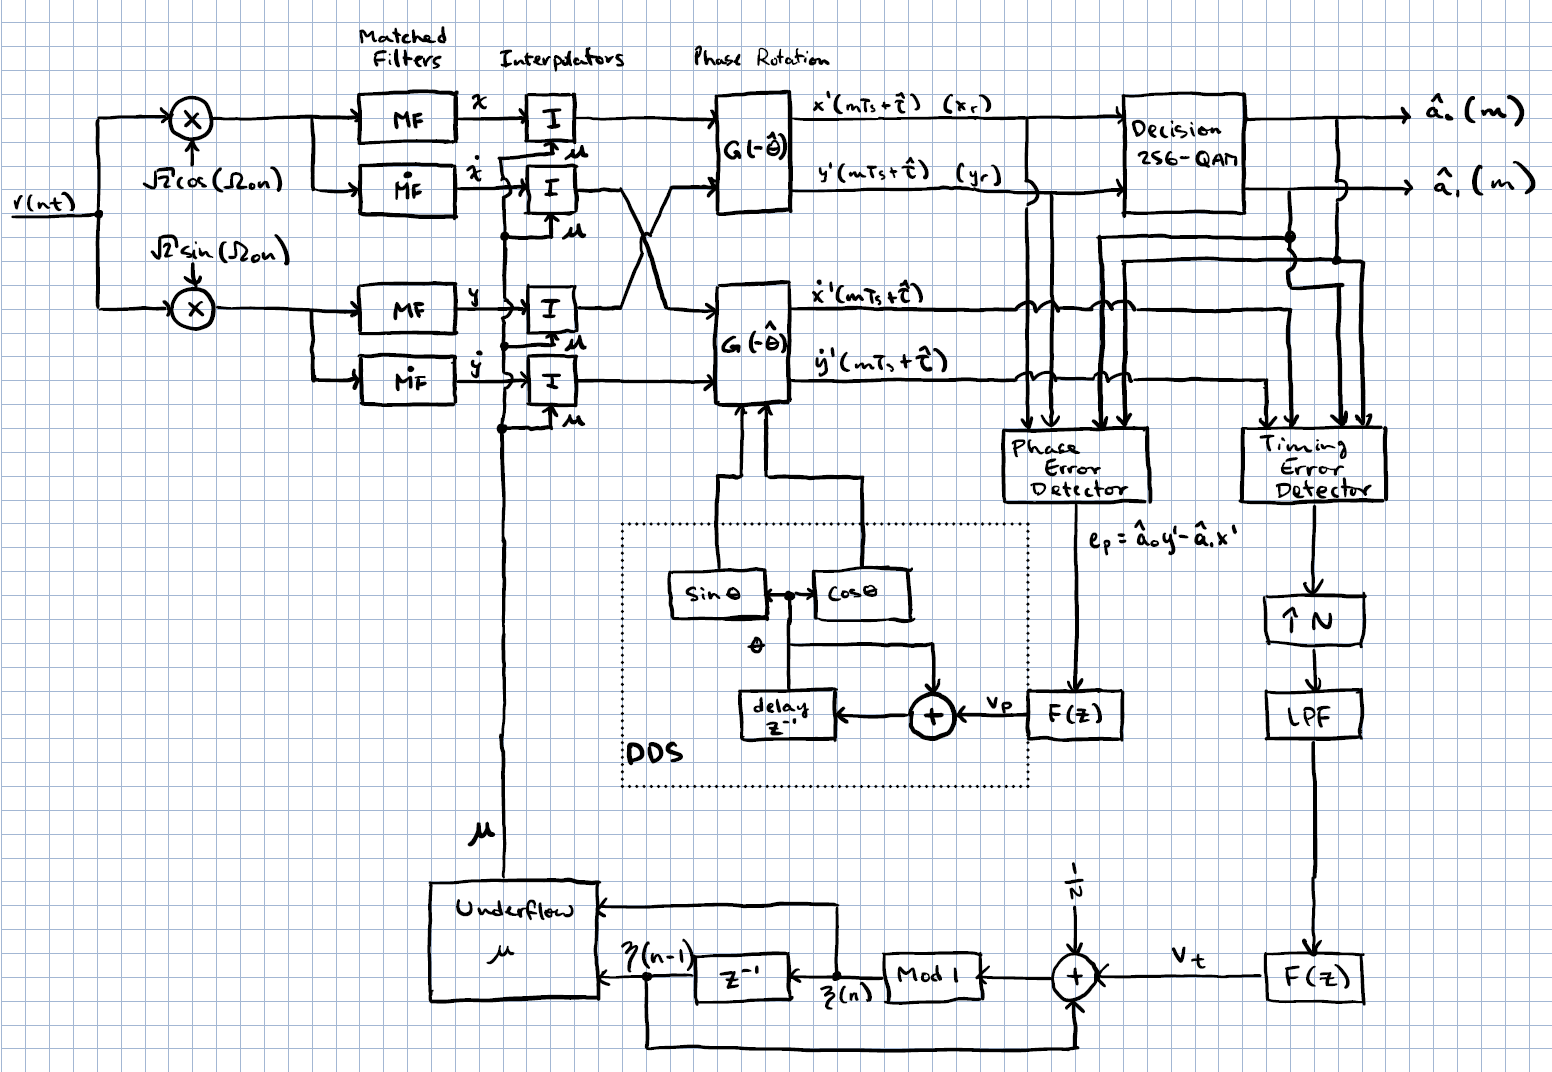 Matched
Filters
Interpolators
Phase Rotation
r(nt)
√2 cos(Ω₀n)
√2 sin(Ω₀n)
×
×
MF
x
I
μ
ṀF
ẋ
I
μ
MF
y
I
μ
ṀF
ẏ
I
μ
G(-θ̂)
x'(mTs+τ̂) (xr)
y'(mTs+τ̂) (yr)
G(-θ̂)
ẋ'(mTs+τ̂)
ẏ'(mTs+τ̂)
Decision
256-QAM
â₀(m)
â₁(m)
Phase
Error
Detector
Timing
Error
Detector
eₚ = â₀y' - â₁x'
sin θ
cos θ
θ
delay
z⁻¹
+
Vp
F(z)
DDS
↑ N
LPF
μ
Underflow
μ
η(n-1)
z⁻¹
η(n)
Mod 1
+
1/N
Vt
F(z)